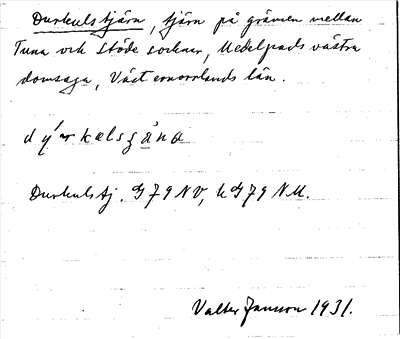 Durkulstjärn, tjärn på gränsen mellan
Tuna och Stöde socknar, Medelpads västra
domsaga, Västernorrlands län.
Durkulstj. G79NV, UG79NU.
Valter Jansson 1931.